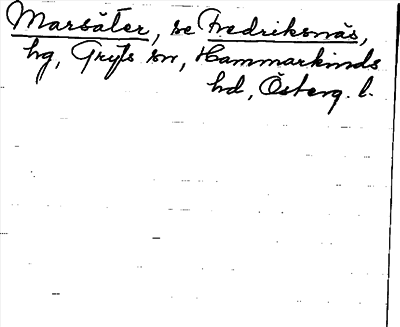 Marsäter, se Fredriksnäs,
hg, Gryts sn, Hammarkinds
hd, Österg. l.